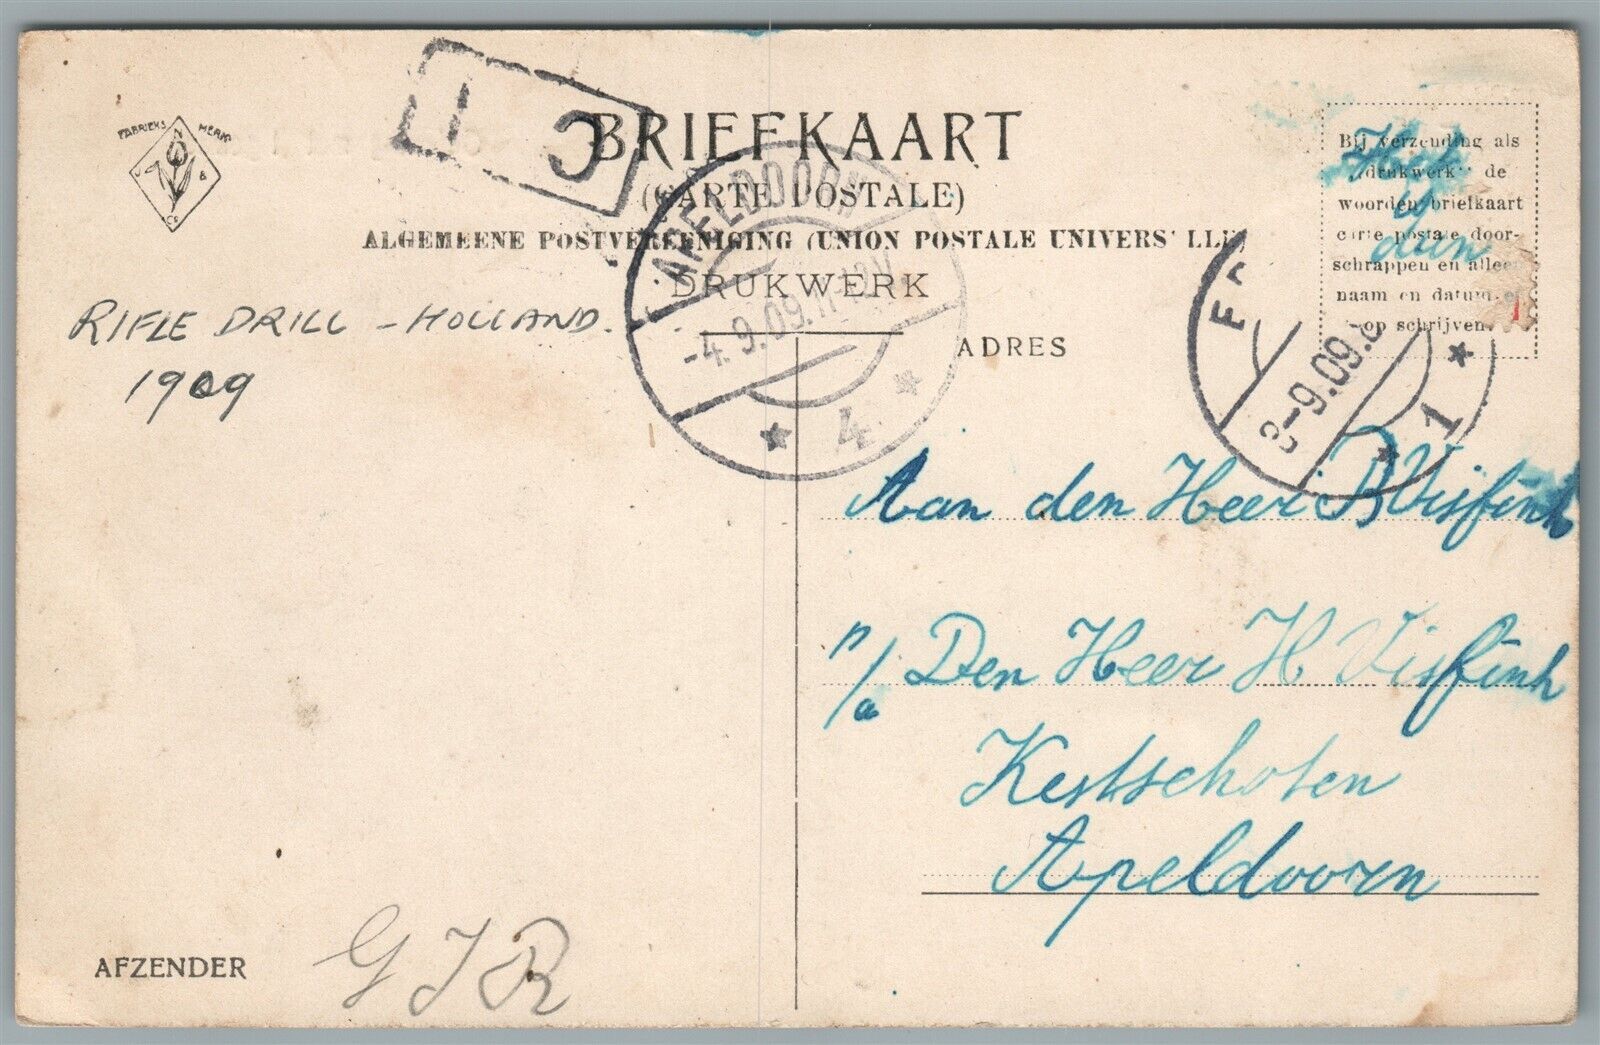 FABRIEKS MERK
J & Co
BRIEFKAART
(CARTE POSTALE)
ALGEMEENE POSTVEREENIGING (UNION POSTALE UNIVERSELLE)
DRUKWERK
APELDOORN
-4.9.09.11-12V
4
ADRES
RIFLE DRILL - HOLLAND.
1909
Bij verzending als
"drukwerk" de
woorden briefkaart
carte postale door-
schrappen en alleen
naam en datum er
op schrijven.
-9.09.
1
Aan den Heer B Visfink
p/a Den Heer H Visfink
Kestschoten
Apeldoorn
AFZENDER
GJR